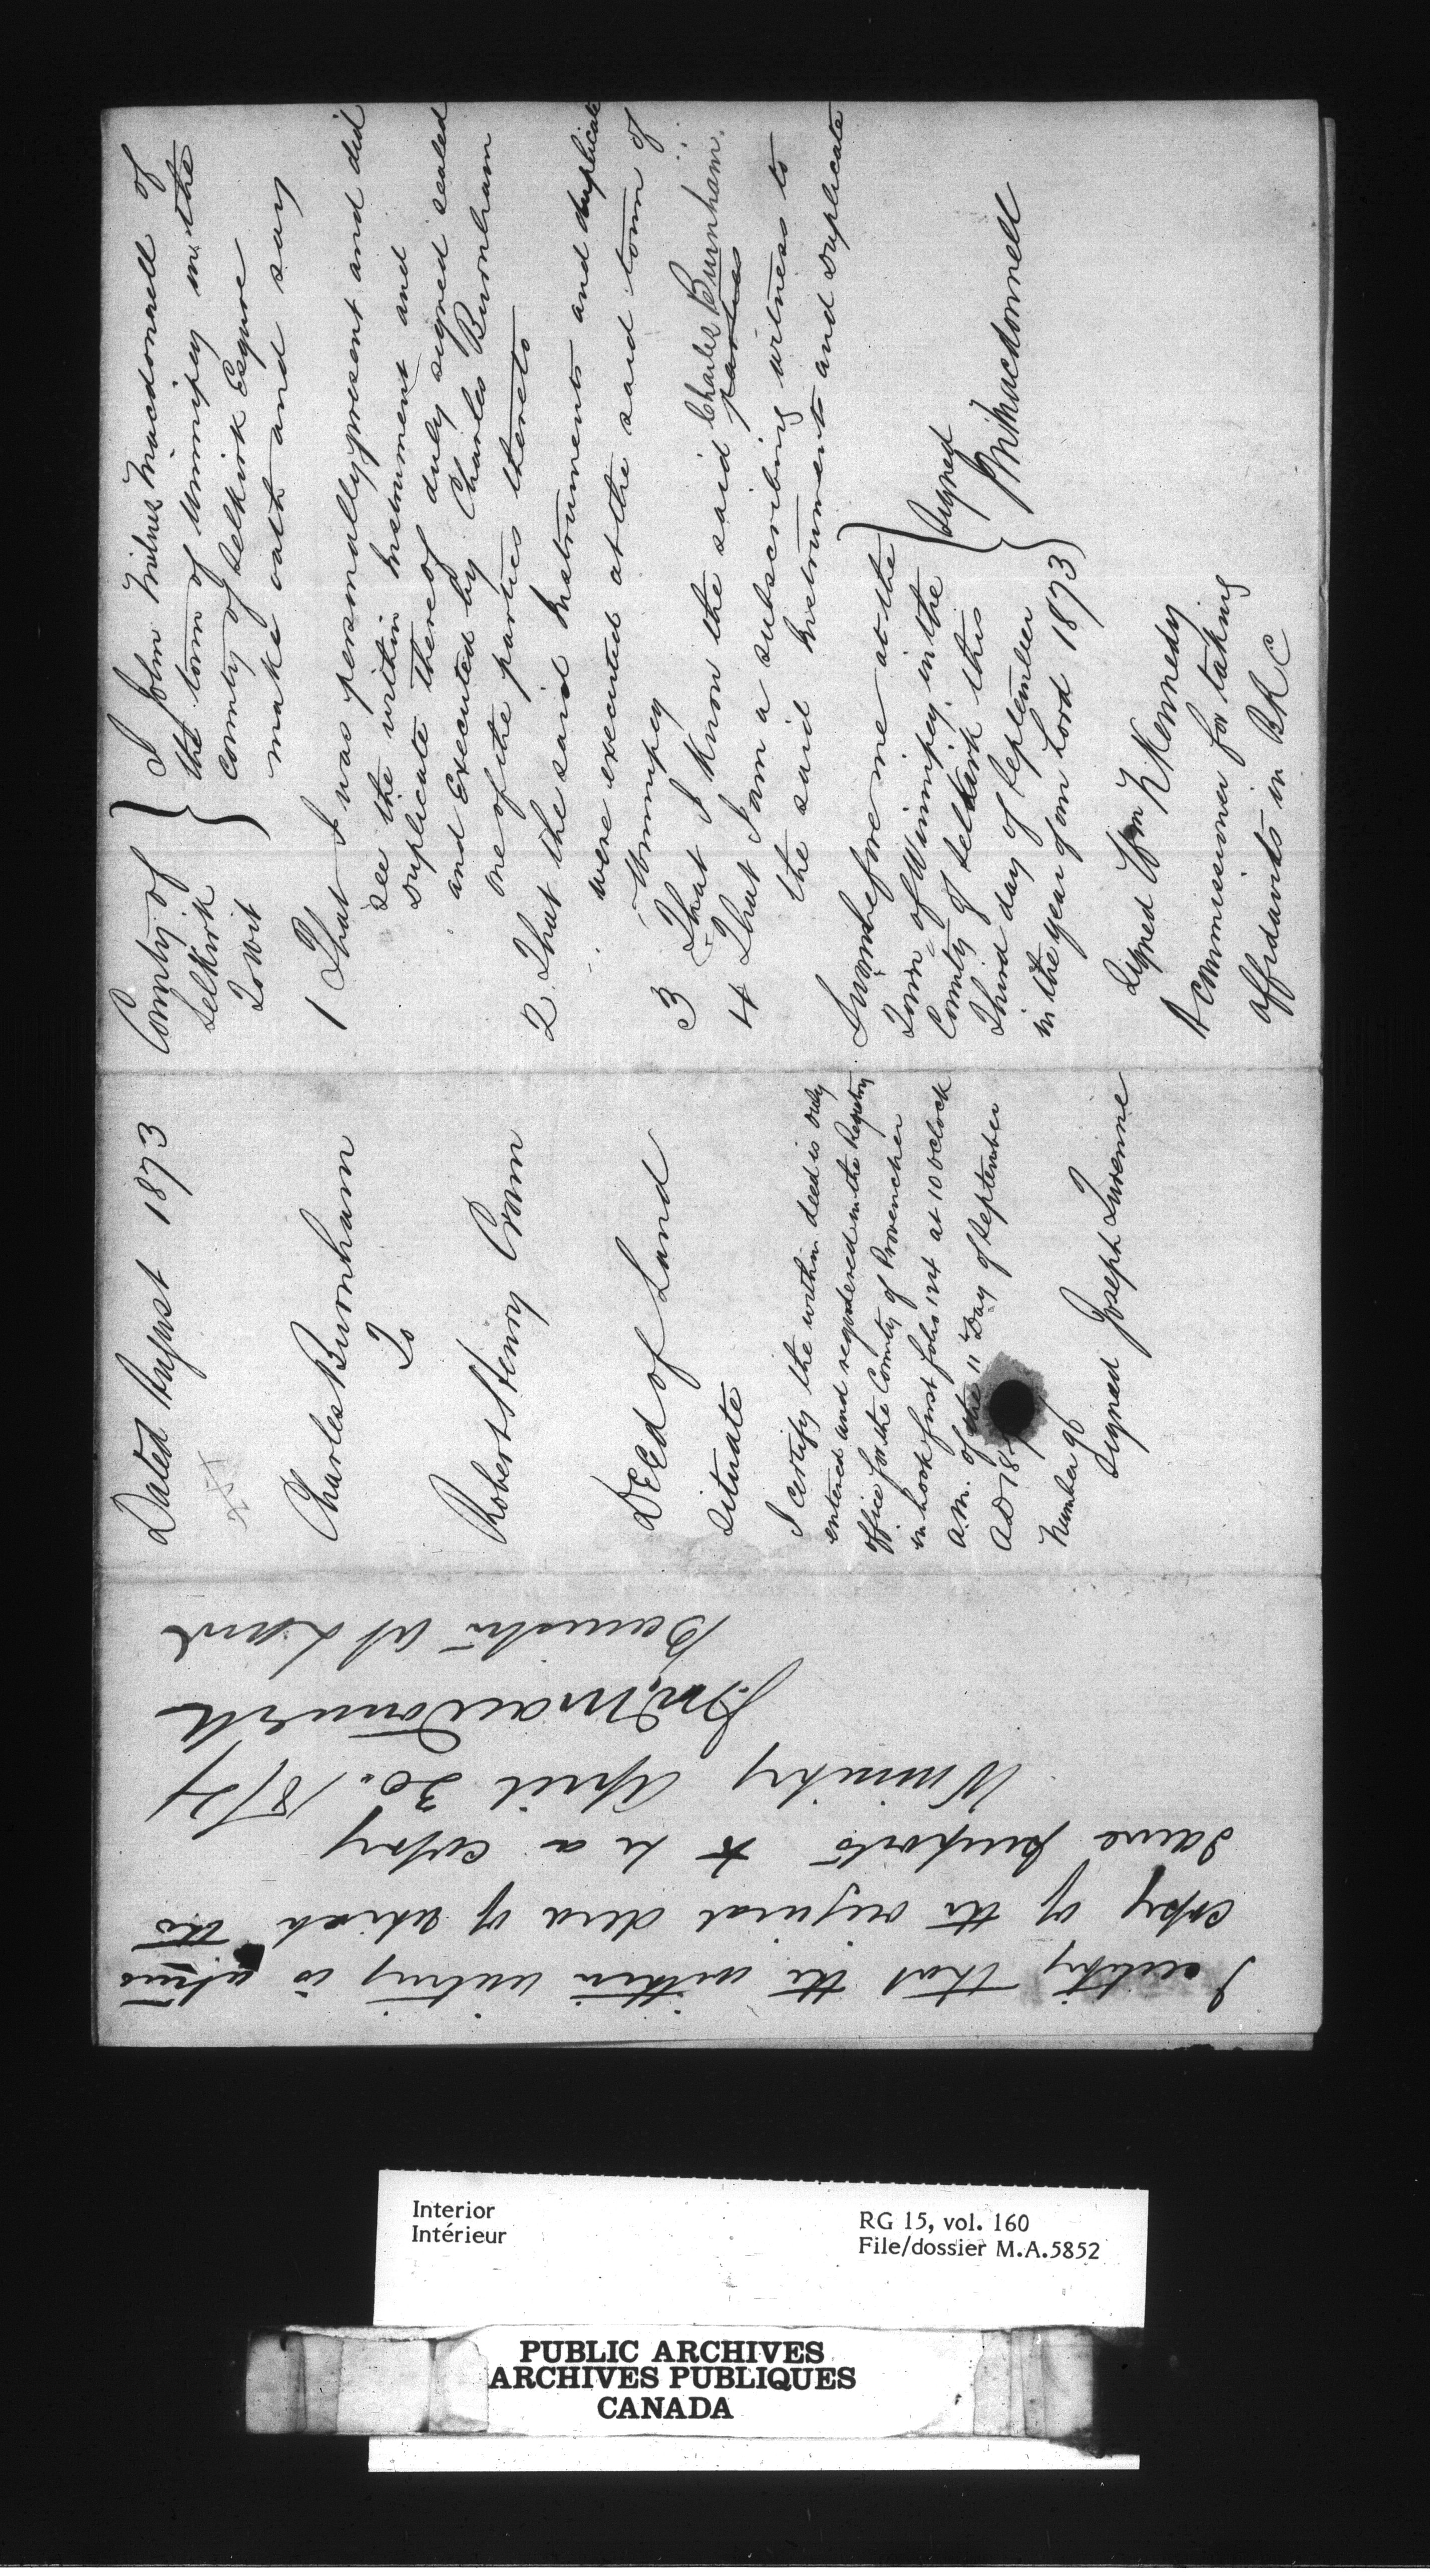 County of
Selkirk
To Wit
I John Milnes Macdonell of
the town of Winnipeg in the
County of Selkirk Esquire
make oath and say
1 That I was personally present and did
see the within Instrument and
duplicate thereof duly signed sealed
and Executed by Charles Burnham
one of the parties thereto
2 That the said Instruments and duplicate
were executed at the said town of
Winnipeg
3 That I know the said Charles Burnham
parties
4 That I am a subscribing witness to
the said Instrument and duplicate
Sworn before me at the
Town of Winnipeg in the
County of Selkirk this
Third day of September
in the year of our Lord 1873
Signed
J Mil Macdonnell
Signed Wm N Kennedy
A Commissioner for taking
affidavits in B R C
Dated August 1873
Charles Burnham
To
Robert Henry Cram
DEED of Land
Situate
I certify the within deed is duly
entered and registered in the Registry
office for the County of Provencher
in book first folio 124 at 10 oclock
a.m. of the 11 Day of September
AD 18
Number 96
Signed Joseph Turenne
I certify that the within writing is a true
copy of the original deed of which the
same purports to be a copy
Winnipeg April 30. 1874
J. Mil. Macdonnell
Barrister at Law
Interior
Intérieur
RG 15, vol. 160
File/dossier M.A.5852
PUBLIC ARCHIVES
ARCHIVES PUBLIQUES
CANADA